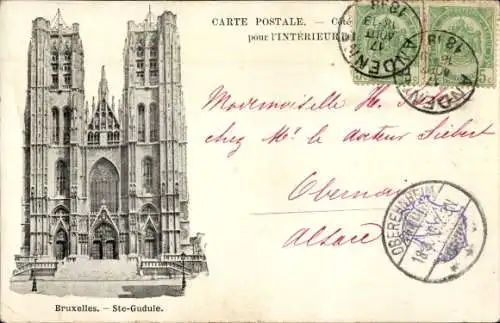 CARTE POSTALE. — Côté
pour l'INTÉRIEUR
ANDENNE
17
AOUT
18-19
ANDENNE
17
AOUT
16
18
5
Mademoiselle H.
chez Mr. le docteur Siebert
Obernai
Alsace
OBEREHNHEIM
18.8.
Bruxelles. — Ste-Gudule.